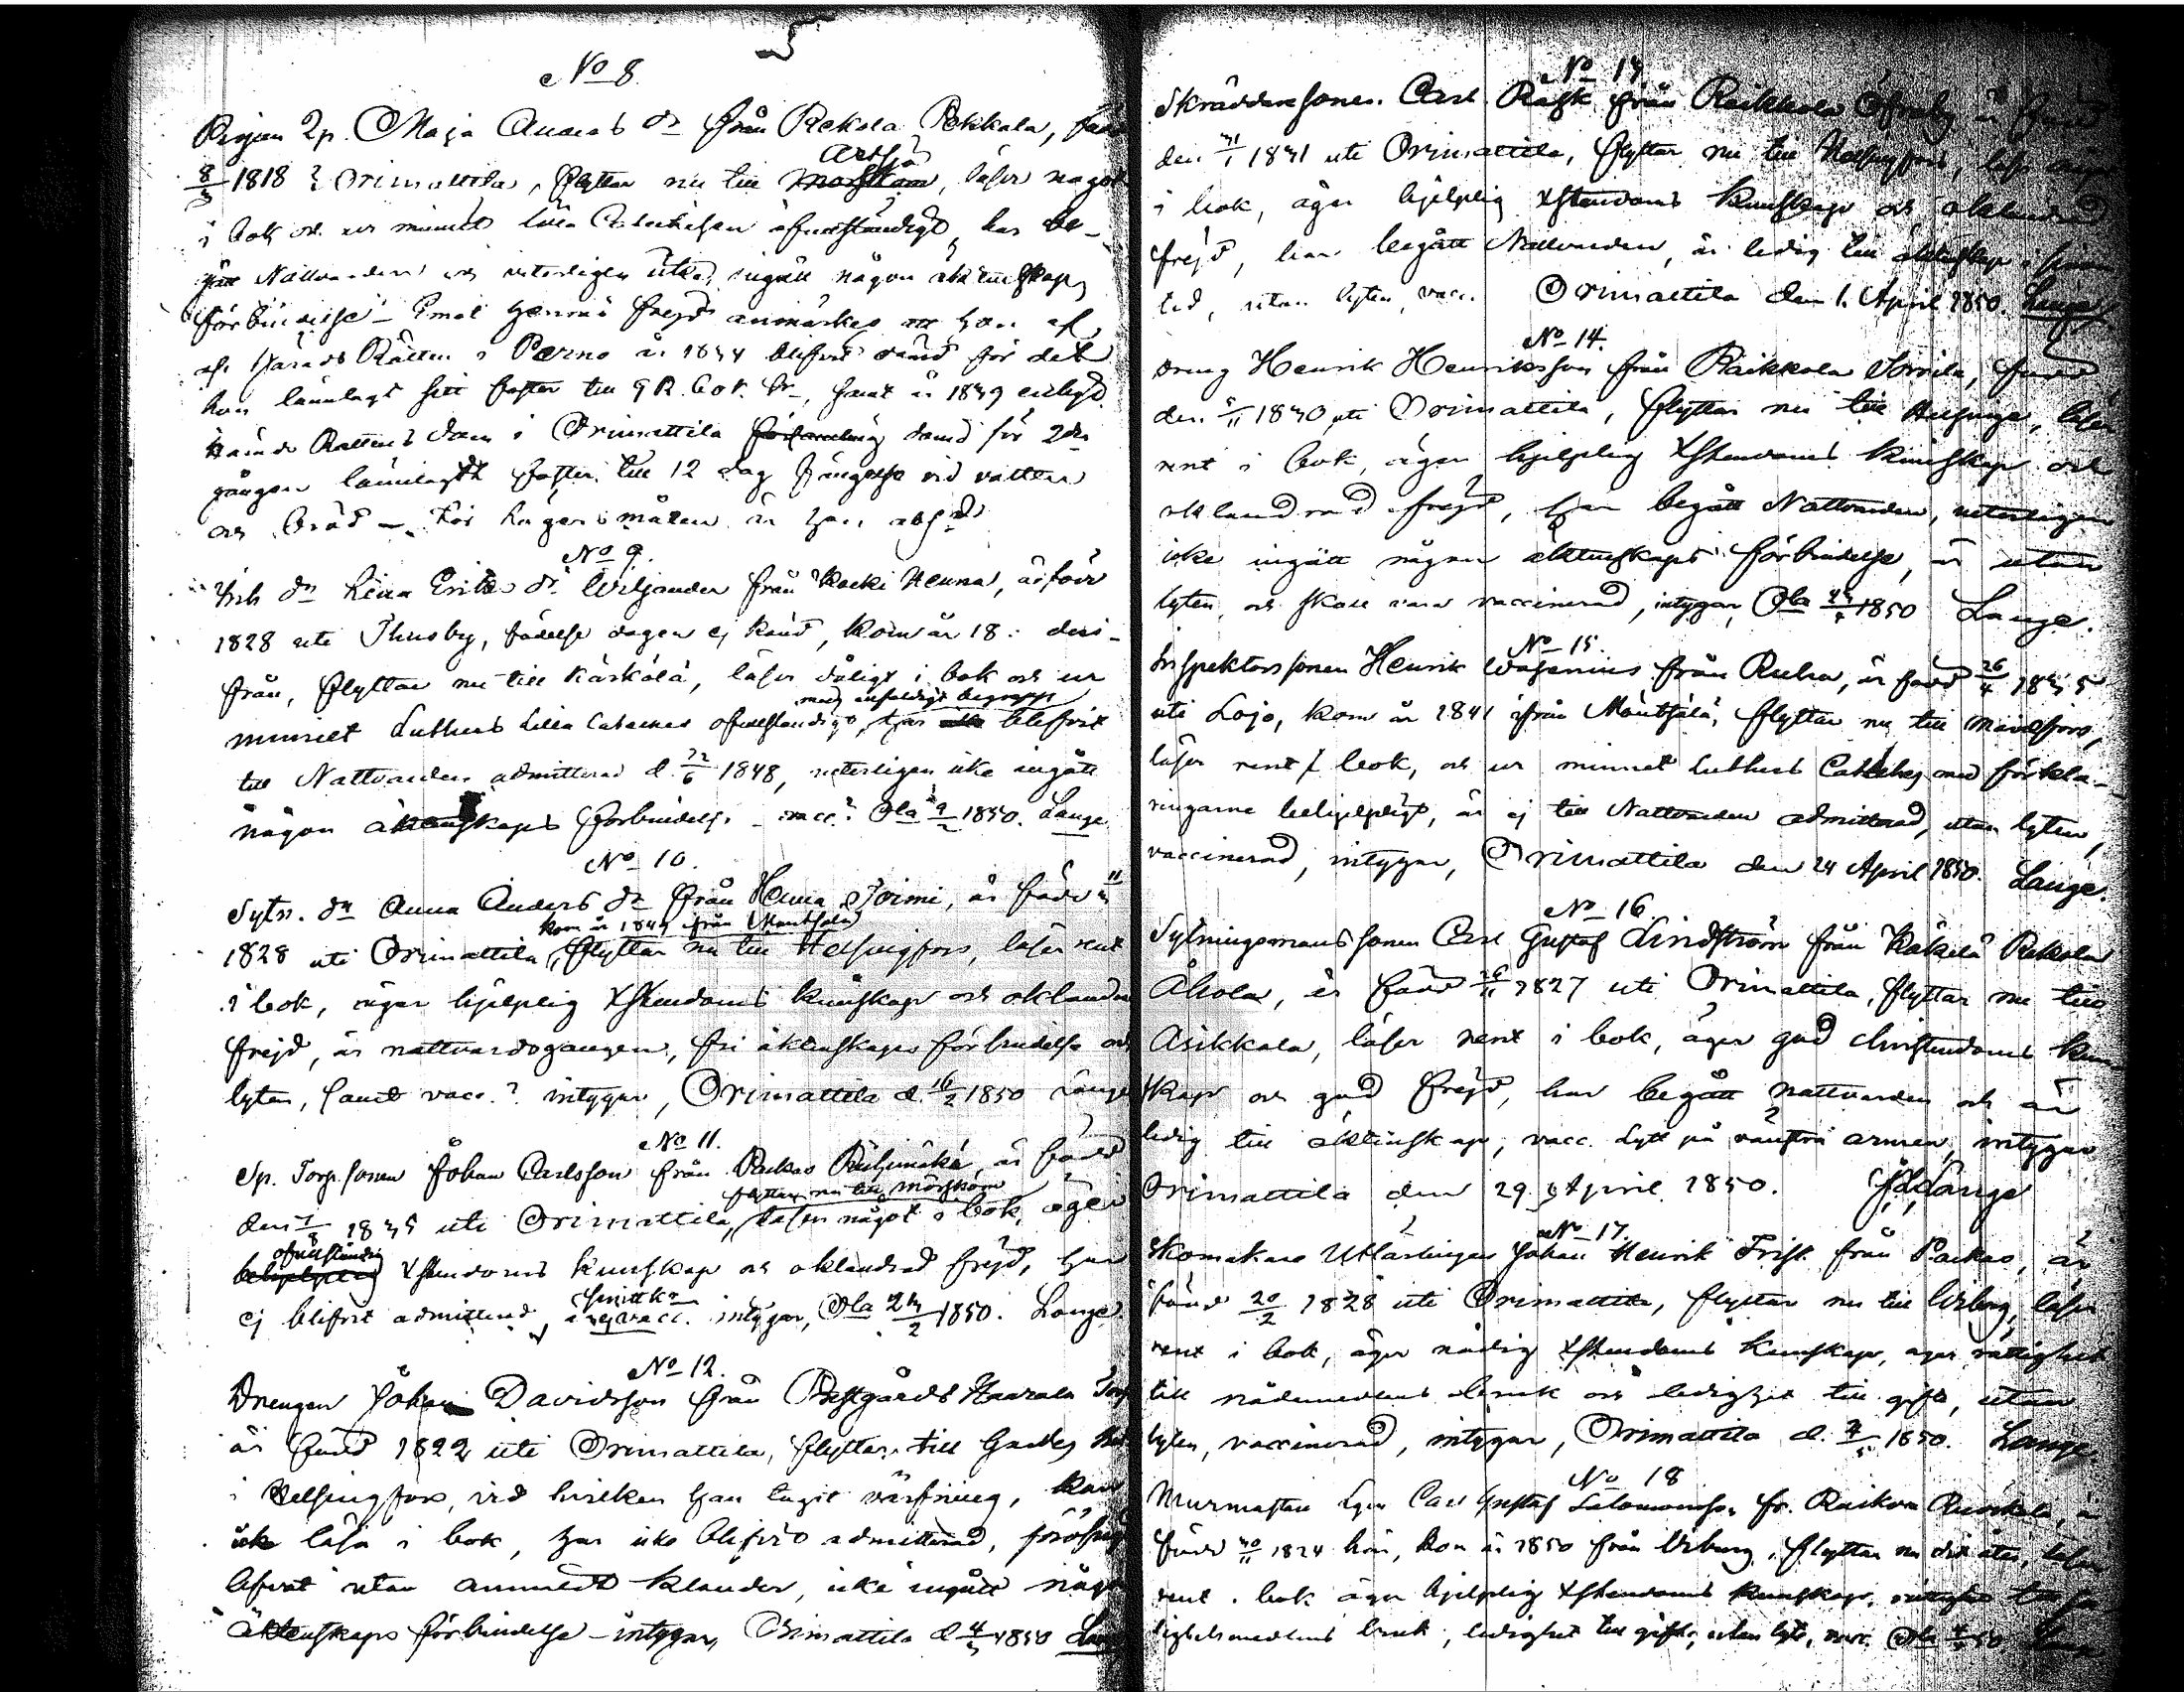 No 8
Pigan Maja Anders dr från Rekola Pekkala, född
8/3 1818 i Orimattila, flyttar nu till Artsjö, läser något
i bok och ur minnet lilla Catechesen ofullständigt, har be-
gått Nattvarden och veterligen icke ingått någon äktenskaps
förbindelse - Emot hennes frejd anmärkes att hon af
Härads Rätten i Perno år 1844 blifvit dömd för det
hon lönnlagt sitt foster till 9 R. bot. Sr, samt år 1849 enligt
Härads Rättens dom i Orimattila dömd för 2dra
gången lönnlagdt foster till 12 dag fängelse vid vatten
och bröd -
No 9.
Inh dr Lena Erics dr Wiljander från Koski Henna, är född
1828 uti Thusby, födelse dagen ej känd, kom år 18 : deri-
från, flyttar nu till Kärkölä, läser dåligt i bok och ur
med enfaldigt begrepp
minnet Luthers Lilla Cateches ofullständigt, har blifvit
till Nattvarden admitterad d. 22/6 1848, veterligen icke ingått
någon äktenskaps förbindelse - vacc. Ola 1850. Lange
No 10.
Sytn. dr Anna Anders dr från Henna Toimi, är född
kom år 1844 från Mäntsälä
1828 uti Orimattila, flyttar nu till Helsingfors, läser rent
i bok, äger hjelplig Xstendoms kunskap och oklandrad
frejd, är nattvardsgången, fri äktenskaps förbindelse och
lyten, samt vacc.? intygar, Orimattila d. 16/2 1850 Lange
No 11.
Sp. Torp. sonen Johan Carlsson från Packas Riihimäki, är född
flyttar nu till Mörskom
den 1/8 1835 uti Orimattila, läser något i bok, äger
ofullständig
behjelplig Xstendoms kunskap och oklandrad frejd, har
ej blifvit admitterad, vacc. intygar, Ola 1850. Lange
No 12.
Drengen Johan Davidsson från Prestgårds Haarala Torp
är född 1822 uti Orimattila, flyttar till Gardes
i Helsingfors, vid hvilken han tagit värfning, kan
icke läsa i bok, har icke blifvit admitterad, föröfrigt
lefvat utan anmäldt klander, icke ingått någon
äktenskaps förbindelse - intygar, Orimattila d. 4/3 1850 Lange
No 13
Skräddaresonen Carl Rask från Raikkola Öfverby är född
den 31/1 1831 uti Orimattila, flyttar nu till Helsingfors, läser
i bok, äger hjelplig Xstendoms kunskap och oklandrad
frejd, har begått Nattvarden, är ledig till äktenskap i
tid, utan lyten, vacc. Orimattila den 1. April 1850. Lange
No 14.
Dreng Henrik Henriksson från Raikkola Sorvila, född
den 1830 uti Orimattila, flyttar nu till Helsinge, läser
rent i bok, äger hjelplig Xstendoms kunskap och
oklandrad frejd, har begått Nattvarden, veterligen
icke ingått någon äktenskaps förbindelse, är utan
lyten, och skall vara vaccinerad, intygar, Ola 1850 Lange.
No 15.
Inspektorssonen Henrik Wasenius från Ruha, är född 26/4 1835
uti Lojo, kom år 1841 ifrån Mäntsälä, flyttar nu till
läser rent i bok, och ur minnet Luthers Cateches med förkla-
ringarne behjelpligt, är ej till Nattvarden admitterad, utan lyten,
vaccinerad, intygar, Orimattila den 24 April 1850. Lange.
No 16
Sytningsmans sonen Carl Gustaf Lindström från Käkelä Rekola
Åhola, är född 1827 uti Orimattila, flyttar nu till
Asikkala, läser rent i bok, äger god christendoms kun
skap och god frejd, har begått nattvarden och är
ledig till äktenskap, vacc. Lytt på vänstra armen, intygar
Orimattila den 29. April 1850. Lange
No 17.
Skomakare Utlärlingen Johan Henrik Frisk från Packas, är
född 20/2 1828 uti Orimattila, flyttar nu till Wiborg, läser
rent i bok, äger nödig Xstendoms kunskap, äger rättighet
till nådemedlens bruk och ledighet till gifte, utan
lyten, vaccinerad, intygar, Orimattila d. 1850. Lange
No 18
Murmästare Carl Gustaf Salomonsson fr. Raikola Ruokola, är
född 30/11 1824 här, kom år 1850 från Wiborg, flyttar nu dit åter, läser
rent i bok äger hjelplig Xstendoms kunskap, rättighet till sa
lighetsmedlens bruk, ledighet till gifte, utan lyte, vacc. Ola 50 Lange